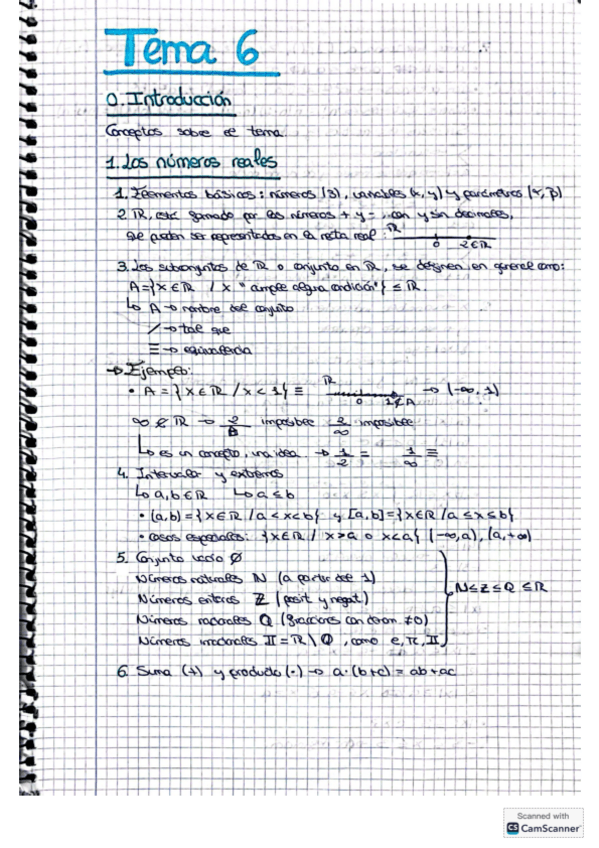 Tema 6
0. Introducción
Conceptos sobre el tema
1. Los números reales
1. Elementos básicos: números (3), variables (x, y) y parámetros (α, β)
2. ℝ, está formado por los números + y -, con y sin decimales,
que pueden ser representados en la recta real: ℝ 0 2∈ℝ
3. Los subconjuntos de ℝ o conjunto en ℝ, se designen en general como:
A={x∈ℝ / x "cumple alguna condición"} ≤ ℝ.
↳ A → nombre del conjunto
/ → tal que
≡ → equivalencia
→ Ejemplo:
• A = {x∈ℝ / x < 1} ≡ ℝ 0 1∉A → (-∞, 1)
∞ ∉ ℝ → imposible 2/∞ imposible
↳ es un concepto, una idea → 1/2 = 1/∞ ≡
4. Intervalos y extremos
↳ a, b ∈ ℝ ↳ a ≤ b
• (a, b) = {x∈ℝ / a < x < b} y [a, b] = {x∈ℝ / a ≤ x ≤ b}
• casos especiales: {x∈ℝ / x>a o x<a} (-∞, a), (a, +∞)
5. Conjunto vacío ∅
Números naturales ℕ (a partir del 1)
Números enteros ℤ (posit. y negat.)
Números racionales ℚ (fracciones con denom. ≠0)
ℕ ≤ ℤ ≤ ℚ ≤ ℝ
Números irracionales 𝕀 = ℝ \ ℚ, como e, π,
6. Suma (+) y producto (·) → a·(b+c) = ab+ac
Scanned with
CS CamScanner